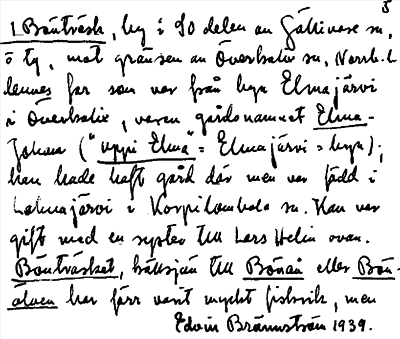 5
1 Bönträsk, by i SO delen av Gällivare sn,
ö ty, mot gränsen av Överkalix sn, Norrb. l.
hennes far som var från byn Elmajärvi
i Överkalix, varav gårdsnamnet Elma-
Johan ("uppi Elma" = Elmajärvi = byn);
han hade haft gård där men var född i
Lolmajärvi i Korpilombolo sn. Han var
gift med en syster till Lars Helin ovan.
Bönträsket, källsjön till Bönån eller Bön-
älven har förr varit mycket fiskrik, men
Edvin Brännström 1939.